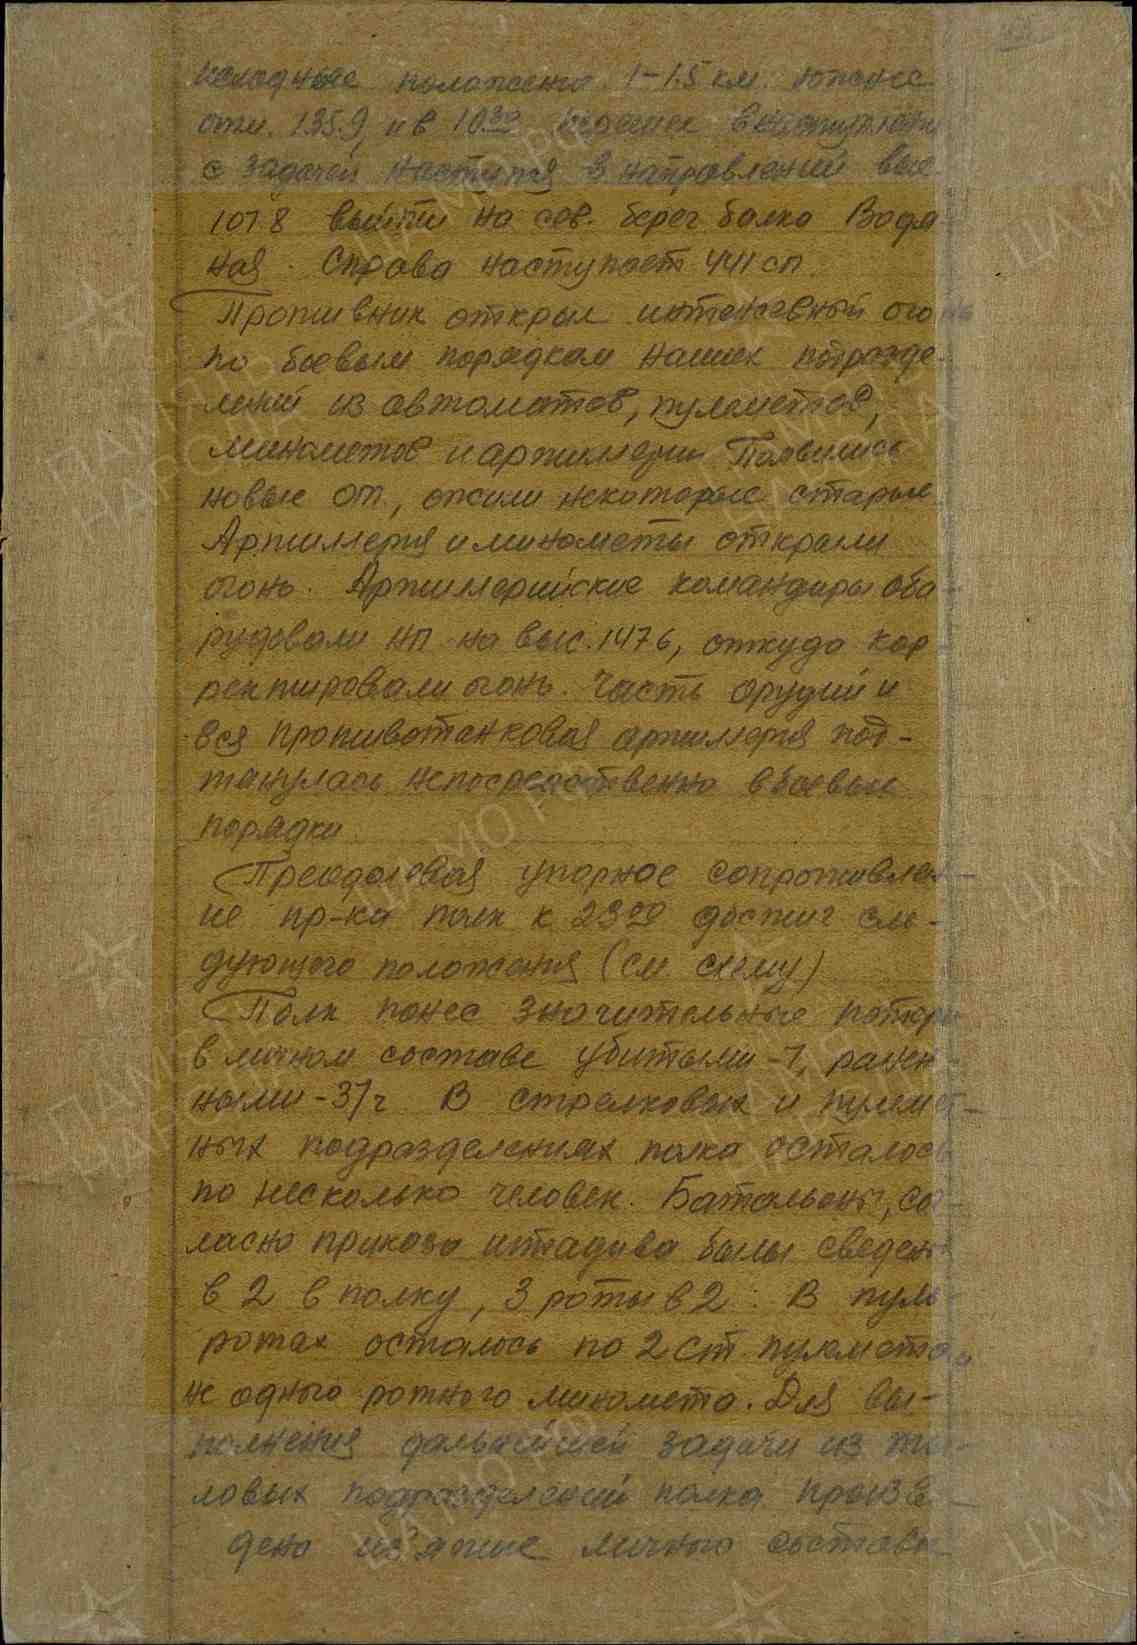 исходные положения 1-1.5 км. южнее
отм. 135.9, и в 10.30 перешел в наступление
с задачей наступая в направлений выс.
107.8 выйти на сев. берег балка Водя-
ная. Справа наступает 441 сп.
Противник открыл интенсевный огонь
по боевым порядкам наших подразде-
лений из автоматов, пулеметов,
минометов и артиллерии. Появились
новые от., ожили некоторые старые
Артиллерия и минометы открыли
огонь. Артиллерийские командиры обо-
рудовали нп на выс. 147.6, откуда кор-
ректировали огонь. Часть орудий и
вся противотанковая артиллерия под-
танулась непосредственно в боевые
порядки.
Преодолевая упорное сопротивлен-
ие пр-ка полк к 23.00 достиг сле-
дующего положения (см схему)
Полк понес значительные потери
в личном составе убитыми -7, ранен-
ными -37ч В стрелковых и пулемет-
ных подразделениях полка осталось
по несколько человек. Батальоны, со-
гласно приказа штадива были сведены
в 2 в полку, 3 роты в 2. В пуль-
ротах осталось по 2 ст. пулемета
не одного ротного миномета. Для вы-
полнения дальнейшей задачи из ты-
ловых подразделений полка произве-
дено из'ятие личного состава